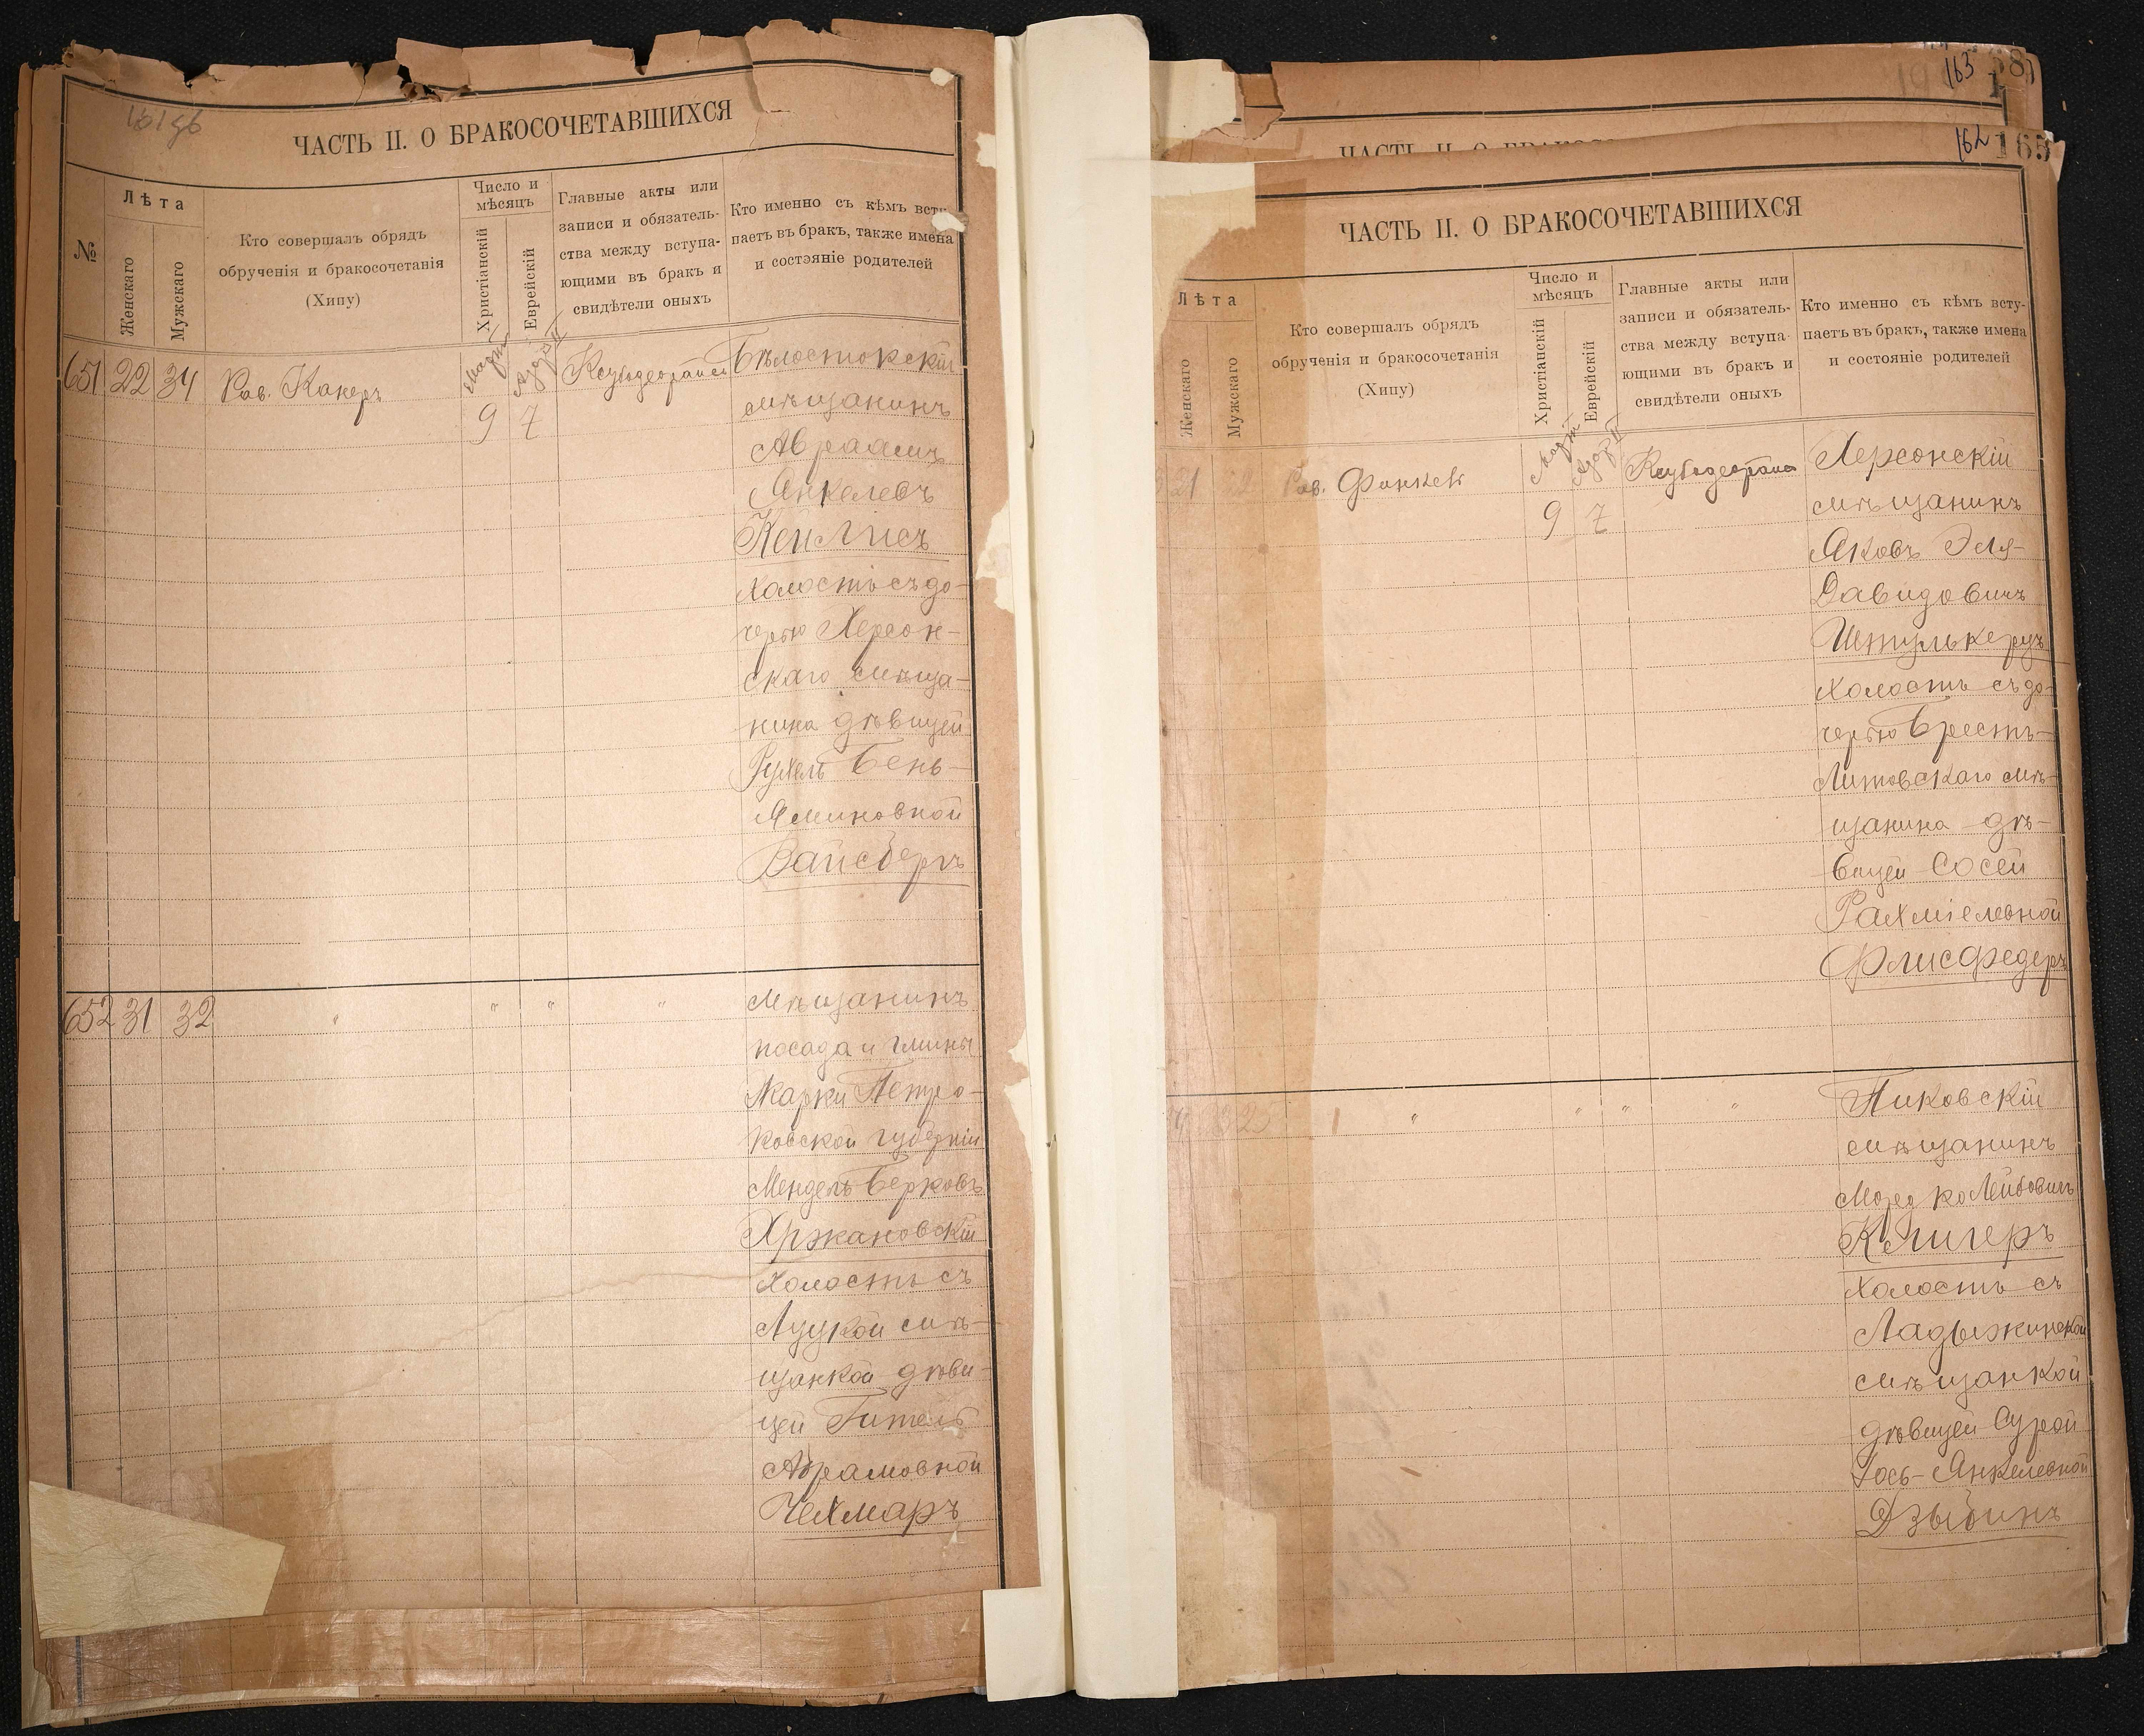 ЧАСТЬ II. О БРАКОСОЧЕТАВШИХСЯ
№
Лѣта
Женскаго
Мужскаго
Кто совершалъ обрядъ
обрученія и бракосочетанія
(Хипу)
Число и
мѣсяцъ
Христіанскій
Еврейскій
Главные акты или
записи и обязатель-
ства между вступа-
ющими въ бракъ и
свидѣтели оныхъ
Кто именно съ кѣмъ всту-
паетъ въ бракъ, также имена
и состояніе родителей
651 22 34 Рав. Канеръ Март 9 7 Бѣлостокскій
мѣщанинъ
Авраамъ
Янкелевъ
Кейлисъ
холостъ съ до-
черью Херсон-
скаго мѣща-
нина дѣвицей
Рухель Бень-
яминовной
Вайсбергъ
652 31 32 " " " " Мѣщанинъ
посада и гмины
Жарки Петро-
ковской губерніи
Мендель Берковъ
Хржановскій
холостъ съ
Луцкой мѣ-
щанкой дѣви-
цей Гитель
Абрамовной
Чехмаръ
163
162 165
ЧАСТЬ II. О БРАКОСОЧЕТАВШИХСЯ
Лѣта
Женскаго
Мужскаго
Кто совершалъ обрядъ
обрученія и бракосочетанія
(Хипу)
Число и
мѣсяцъ
Христіанскій
Еврейскій
Главные акты или
записи и обязатель-
ства между вступа-
ющими въ бракъ и
свидѣтели оныхъ
Кто именно съ кѣмъ всту-
паетъ въ бракъ, также имена
и состояніе родителей
21 22 Рав. Март 9 7 Херсонскій
мѣщанинъ
Яковъ Эля-
Давидовичъ
Штулькеръ
холостъ съ до-
черью Брестъ-
Литовскаго мѣ-
щанина дѣ-
вицей Сосей
Рахміелевной
Флисфедеръ
32 " " " " Пиковскій
мѣщанинъ
Мордко Лейбовичъ
Клигеръ
холостъ съ
Ладыжинской
мѣщанкой
дѣвицей Сурой
Янкелевной
Дзыбинъ